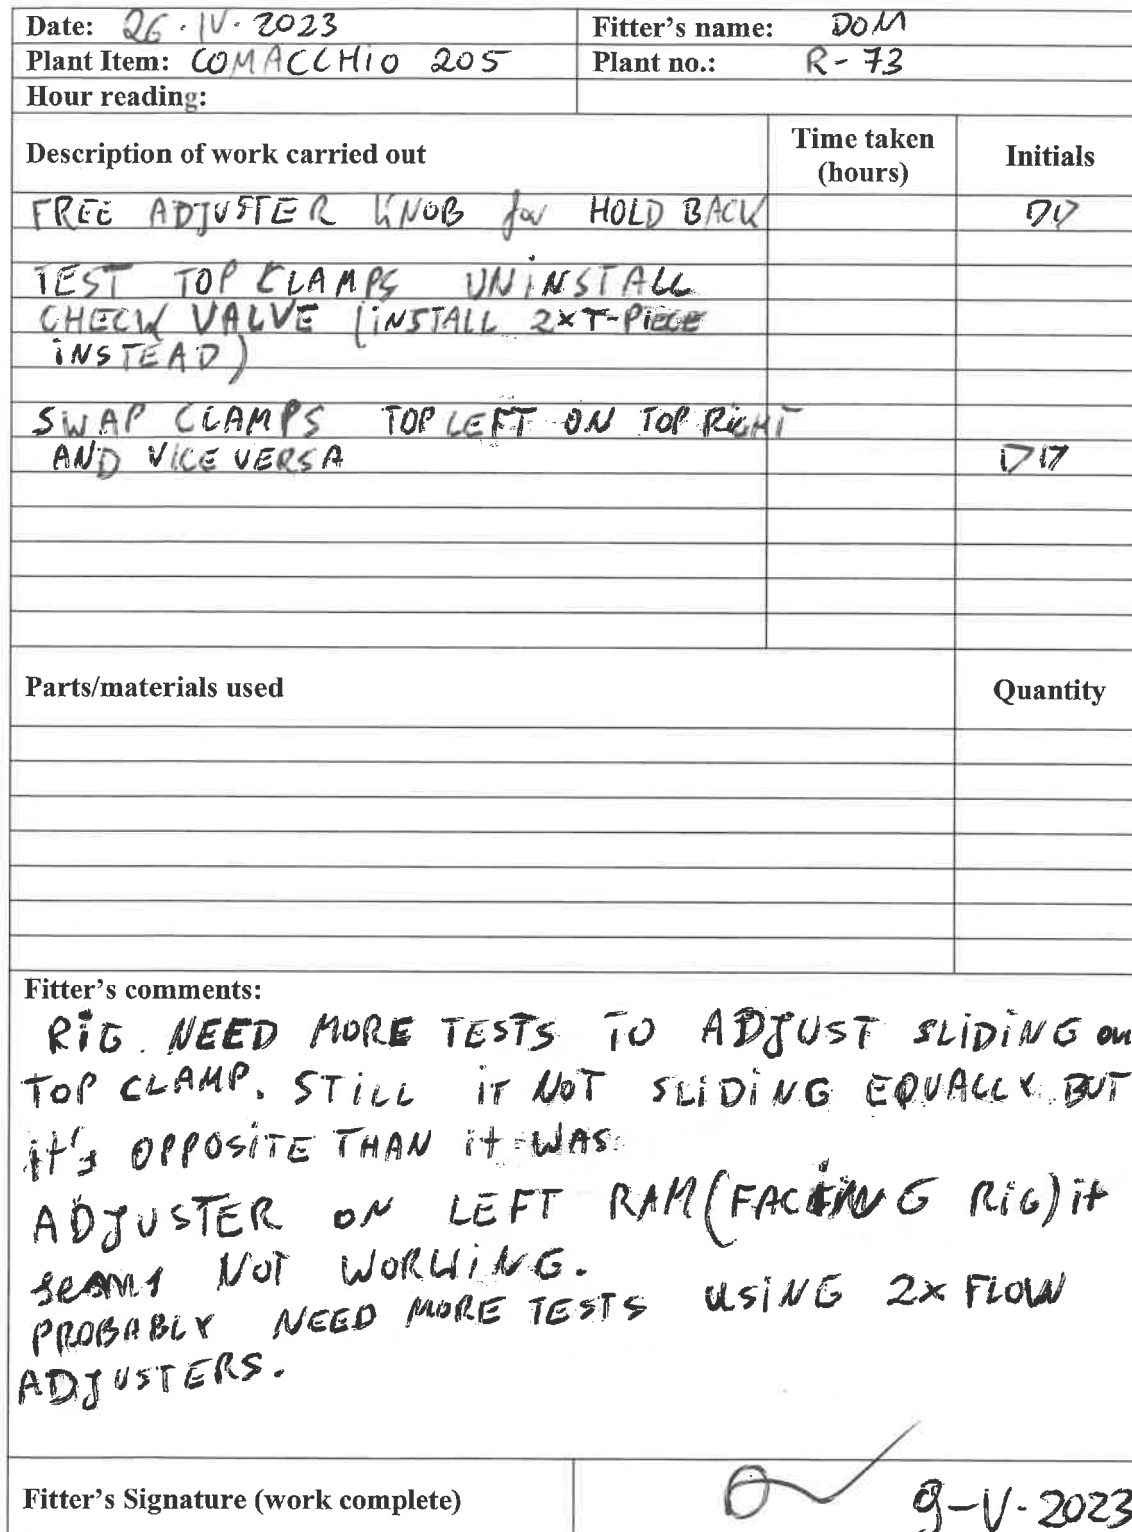 Date: 26·IV·2023 Fitter's name: DOM
Plant Item: COMACCHIO 205 Plant no.: R-73
Hour reading:
Description of work carried out Time taken (hours) Initials
FREE ADJUSTER KNOB for HOLD BACK DD
TEST TOP CLAMPS UNINSTALL
CHECK VALVE (INSTALL 2xT-PIECE
INSTEAD)
SWAP CLAMPS TOP LEFT ON TOP RIGHT
AND VICE VERSA DD
Parts/materials used Quantity
Fitter's comments:
RIG NEED MORE TESTS TO ADJUST SLIDING on
TOP CLAMP. STILL IT NOT SLIDING EQUALLY BUT
it's OPPOSITE THAN it WAS.
ADJUSTER ON LEFT RAM (FACING RIG) it
seams NOT WORKING.
PROBABLY NEED MORE TESTS USING 2x FLOW
ADJUSTERS.
Fitter's Signature (work complete) 9-V-2023